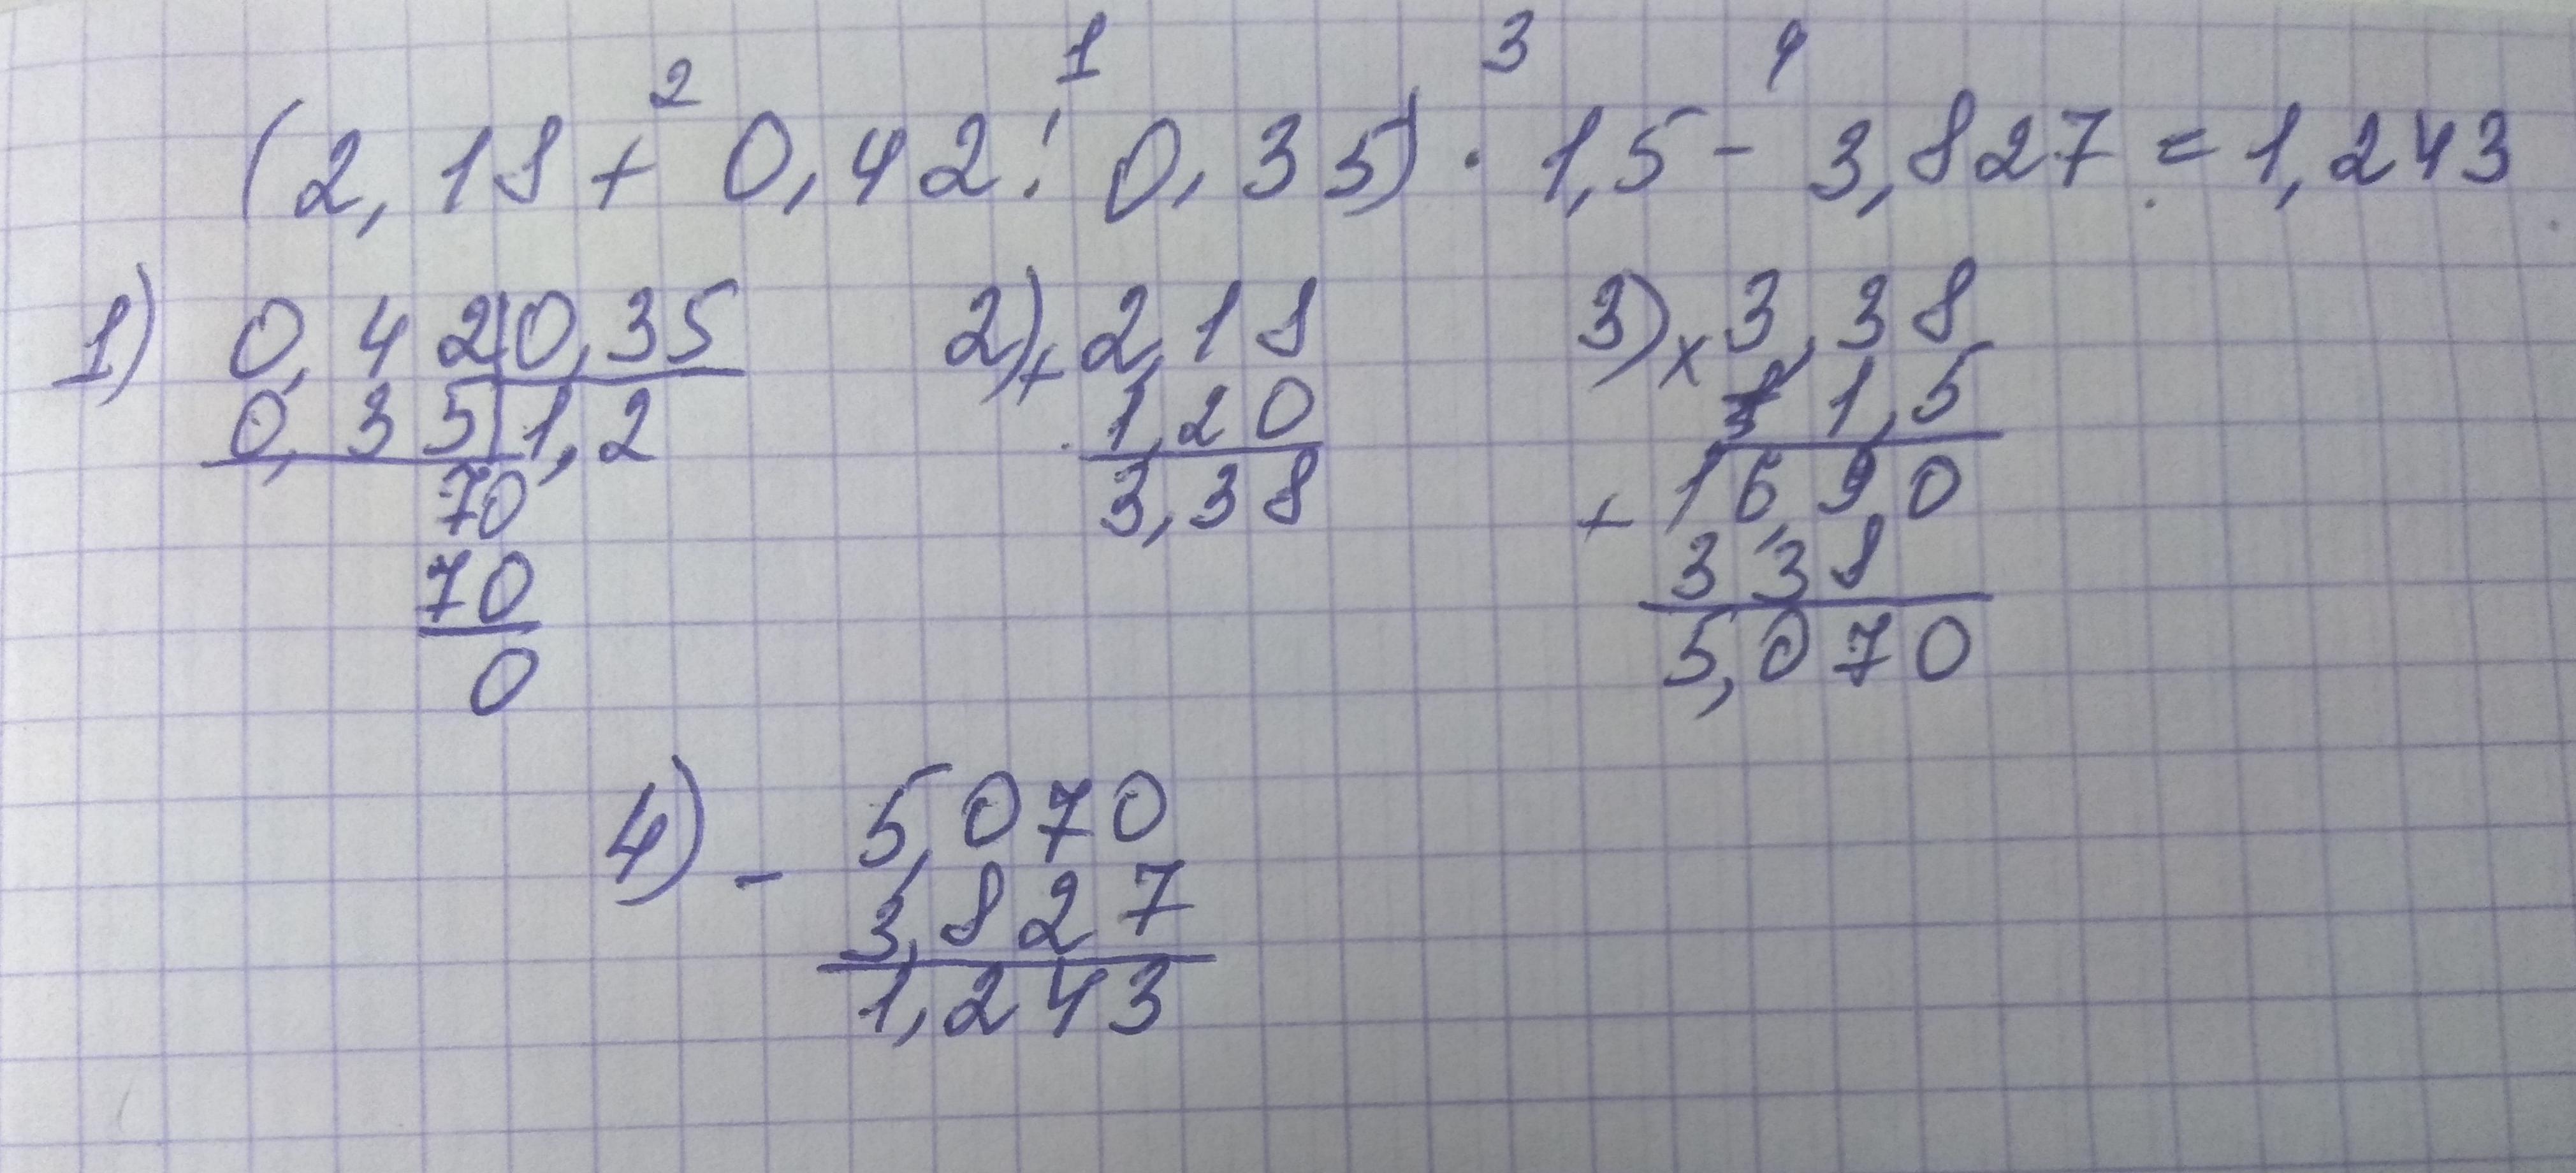 2 1 3 4
(2,18 + 0,42 : 0,35) · 1,5 - 3,827 = 1,243
1) 0,42 0,35 2) + 2,18 3) x 3,38
0,35 1,2 1,20 1,5
70 3,38 + 1690
70 338
0 5,070
4) - 5,070
3,827
1,243